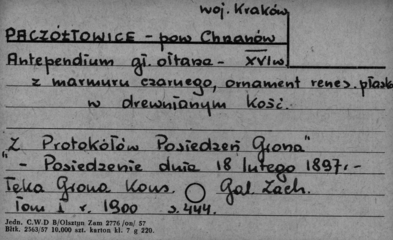 woj. Kraków
PACZÓŁTOWICE - pow Chrzanów
Antependium gł. ołtarza - XVI w
z marmuru czarnego, ornament renes. płask
w drewnianym kośc.
"Z Protokółów Posiedzeń Grona"
- Posiedzenie dnia 18 lutego 1897. -
Teka Grona Kons. Gal. Zach.
Tom I r. 1900 s. 444.
Jedn. C.W.D B/Olsztyn Zam 2776 /on/ 57
Bltk. 2563/57 10.000 szt. karton kl. 7 g 220.